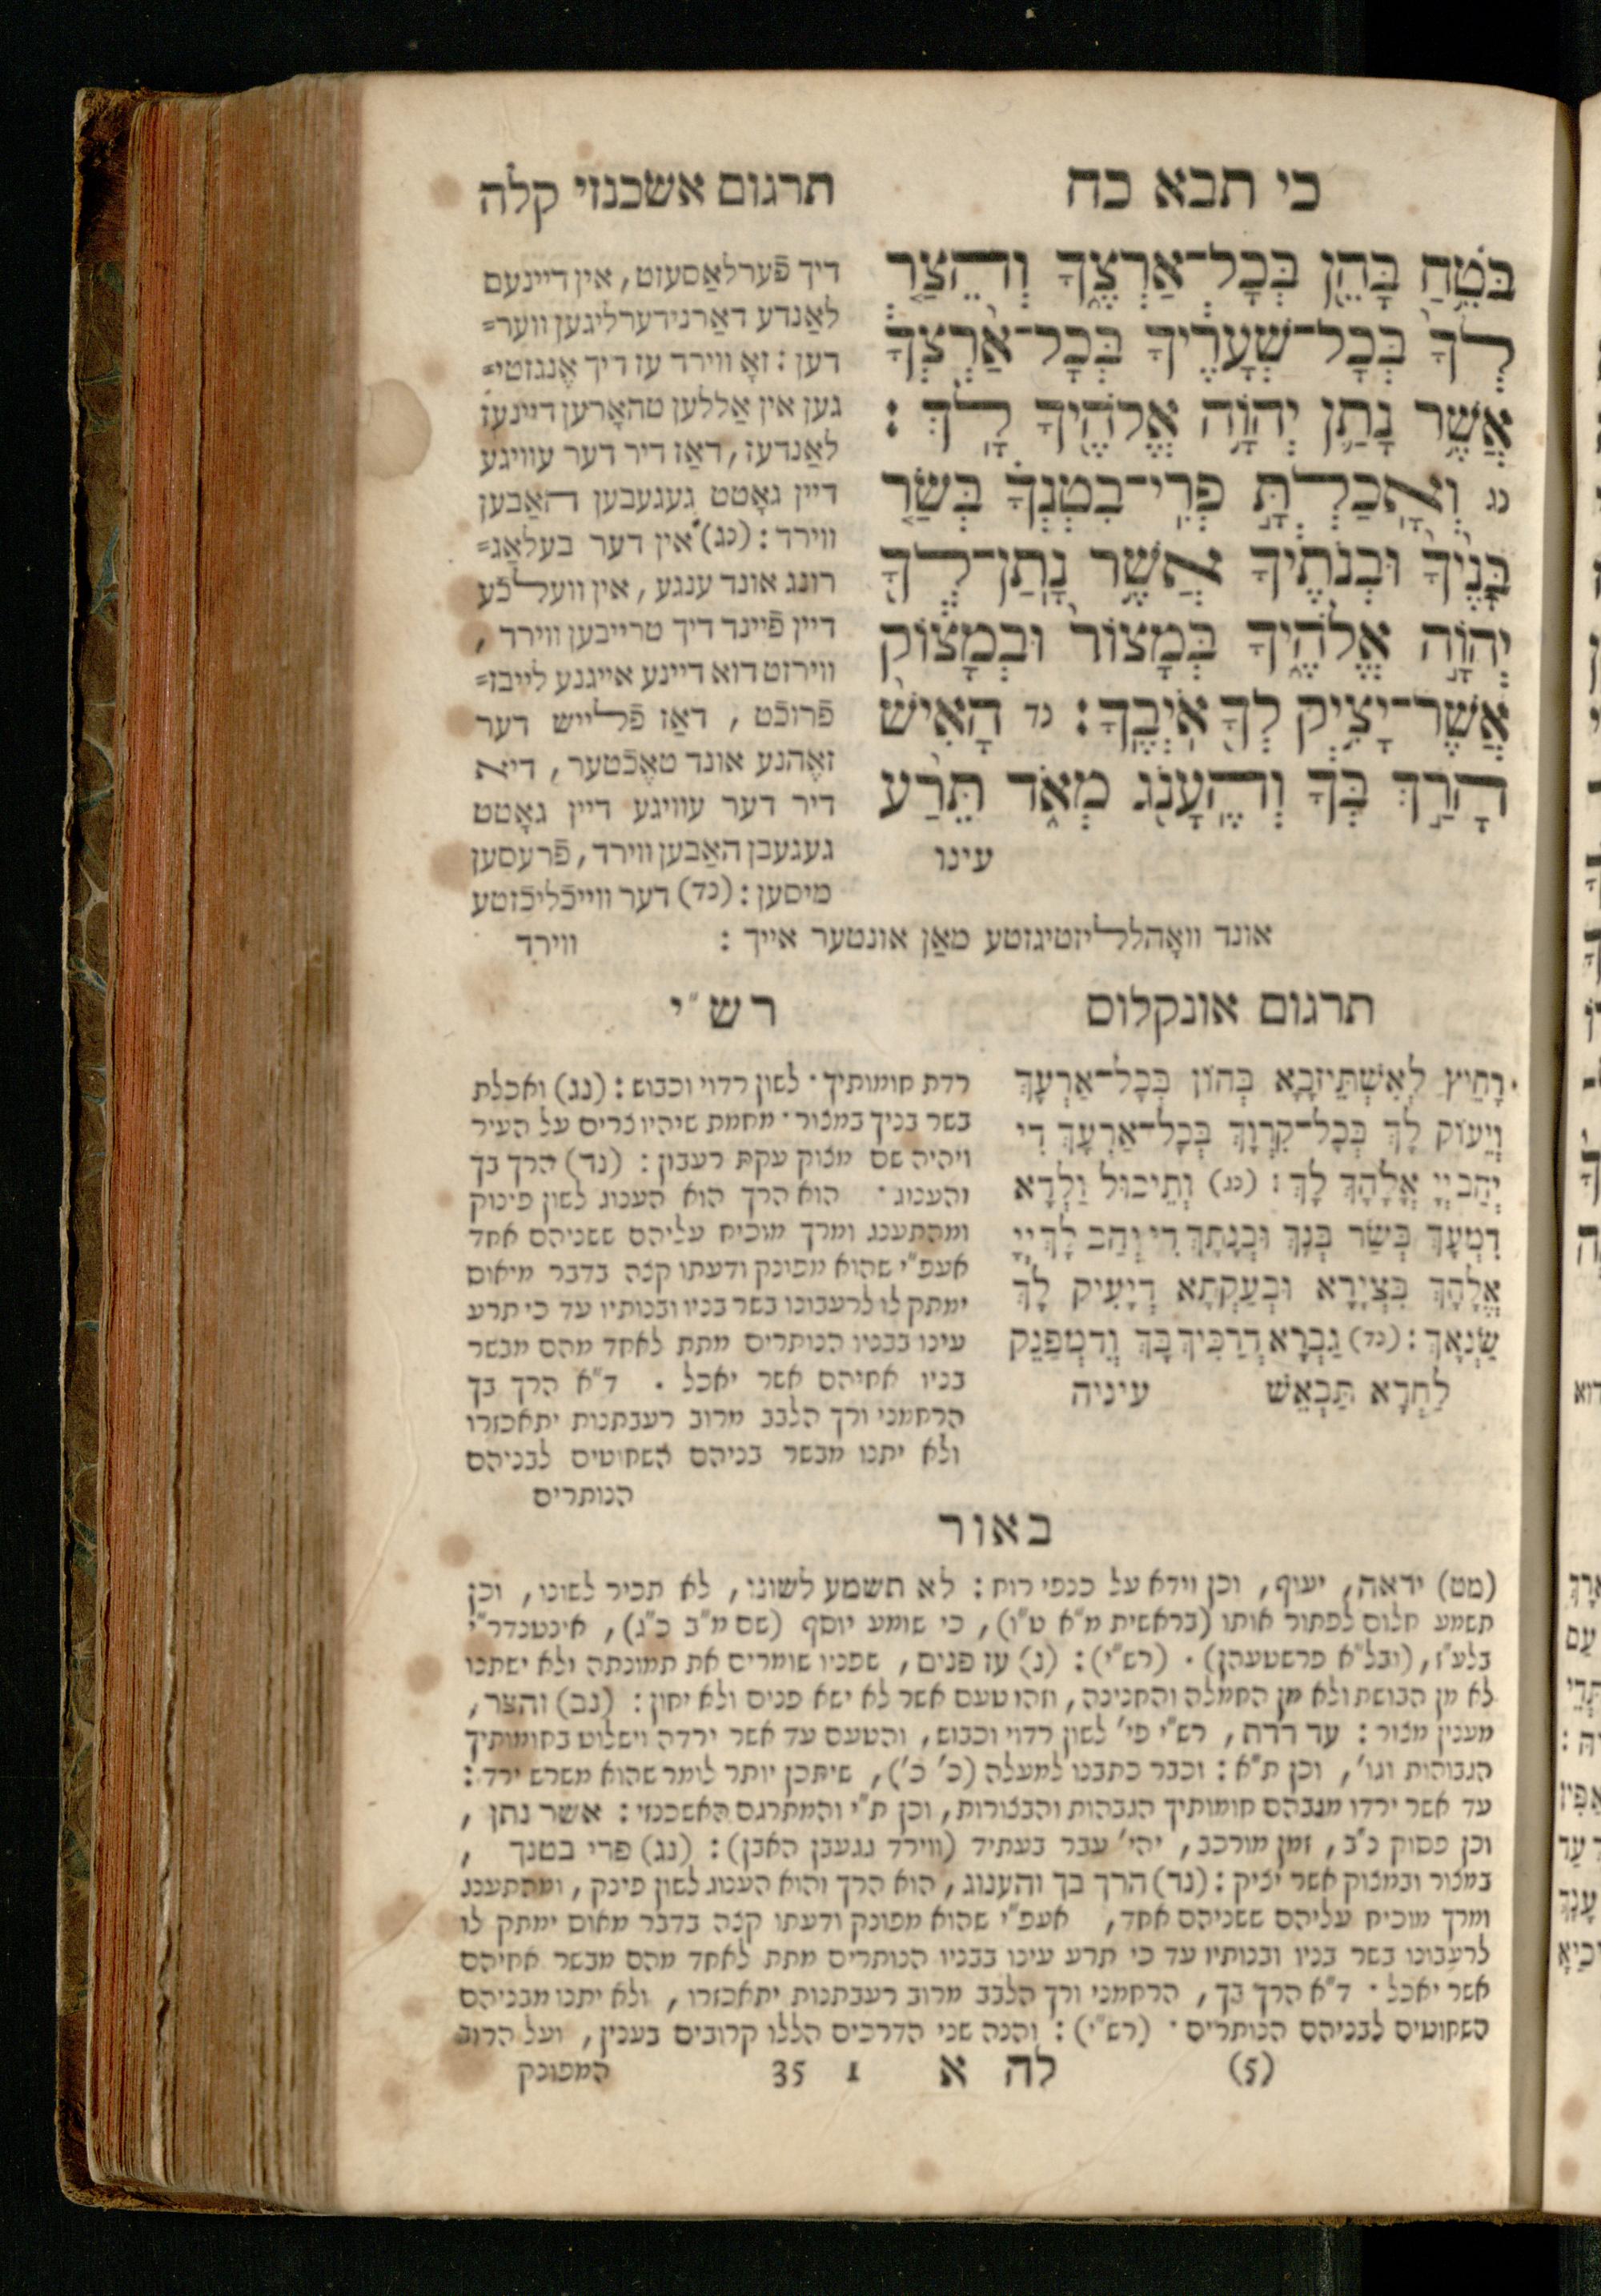 כי תבא כח
תרגום אשכנזי קלה
בֹּטֵ֥חַ בָּהֵ֖ן בְּכָל־אַרְצֶ֑ךָ וְהֵצַ֤ר
לְךָ֙ בְּכָל־שְׁעָרֶ֔יךָ בְּכָ֨ל־אַרְצְךָ֔
אֲשֶׁ֥ר נָתַ֛ן יְהוָֹ֥ה אֱלֹהֶ֖יךָ לָֽךְ׃
נג וְאָֽכַלְתָּ֣ פְרִֽי־בִטְנְךָ֗ בְּשַׂ֤ר
בָּנֶ֙יךָ֙ וּבְנֹתֶ֔יךָ אֲשֶׁ֥ר נָֽתַן־לְךָ֖
יְהוָֹ֣ה אֱלֹהֶ֑יךָ בְּמָצוֹר֙ וּבְמָצ֔וֹק
אֲשֶׁר־יָצִ֥יק לְךָ֖ אֹֽיְבֶֽךָ׃ נד הָאִישׁ֙
הָרַ֣ךְ בְּךָ֔ וְהֶֽעָנֹ֖ג מְאֹ֑ד תֵּרַ֨ע
עינו
דיך פֿערלאַסעזט, אין דיינעם
לאַנדע דאַרנידערליגען ווער=
דען: זאָ ווירד עז דיך אֶנגזטי=
גען אין אַללען טהאָרען דיינעז
לאַנדעז, דאַז דיר דער עוויגע
דיין גאָטט געגעבען האַבען
ווירד: (נג) אין דער בעלאַג=
רונג אונד ענגע, אין וועלכֿע
דיין פֿיינד דיך טרייבען ווירד,
ווירזט דוא דיינע אייגנע לייבז=
פֿרוכֿט, דאַז פֿלייש דער
זאֶהנע אונד טאֶכֿטער, דיא
דיר דער עוויגע דיין גאָטט
געגעבן האַבען ווירד, פֿרעסען
מיסען: (נד) דער ווייכֿליכֿזטע
אונד וואָהללייזטיגזטע מאַן אונטער אייך: ווירד
תרגום אונקלוס
וְחֵיץ לְאִשְׁתֵּיזָבָא בְּהוֹן בְּכָל־אַרְעָךְ
וְיֵעוֹק לָךְ בְּכָל־קִרְוָךְ בְּכָל־אַרְעָךְ דִי
יְהַב יְיָ אֱלָהָךְ לָךְ: (נג) וְתֵיכוּל וַלְדָא
דִמְעָךְ בְּשַׂר בְּנָךְ וּבְנָתָךְ דִי יְהַב לָךְ יְיָ
אֱלָהָךְ בְּצִיָרָא וּבְעַקְתָא דְיָעִיק לָךְ
שַׂנְאָךְ: (נד) גַבְרָא דְרַכִּיךְ בָּךְ וְדִמְפַנֵק
לַחְדָא תַּבְאֵשׁ עיניה
רש״י
רדת חומותיך. לשון רדוי וכבוש: (נג) ואכלת
בשר בניך במצור. מחמת שיהיו צרים על העיר
ויהיה שם מצוק עקת רעבון: (נד) הרך בך
והענוג. הוא הרך הוא הענוג לשון פינוק
ומהתענג ומרך מוכיח עליהם ששניהם אחד
אעפ״י שהוא מפונק ודעתו קצה בדבר מיאום
ימתק לו לרעבונו בשר בניו ובנותיו עד כי תרע
עינו בבניו הנותרים מתת לאחד מהם מבשר
בניו אחיהם אשר יאכל. ד״א הרך בך
הרחמני ורך הלבב מרוב רעבתנות יתאכזרו
ולא יתנו מבשר בניהם השחוטים לבניהם
הנותרים
באור
(מט) ידאה, יעוף, וכן וידא על כנפי רוח: לא תשמע לשונו, לא תכיר לשונו, וכן
תשמע חלום לפתור אותו (בראשית מ״א ט״ו), כי שומע יוסף (שם מ״ב כ״ג), אינטנדר״י
בלע״ז, (ובל״א פרשטעהן). (רש״י): (נ) עז פנים, שפניו שומרים את תמונתה ולא ישתנו
לא מן הבושת ולא מן החמלה והחנינה, וזהו טעם אשר לא ישא פנים ולא יחון: (נב) והצר,
מענין מצור: עד רדת, רש״י פי׳ לשון רדוי וכבוש, והטעם עד אשר ירדה וישלוט בחומותיך
הגבוהות וגו׳, וכן ת״א: וכבר כתבנו למעלה (כ׳ כ׳), שיתכן יותר לומר שהוא משרש ירד:
עד אשר ירדו מגבהם חומותיך הגבהות והבצורות, וכן ת״י והמתרגם האשכנזי: אשר נתן,
וכן פסוק נ״ב, זמן מורכב, יהי׳ עבר בעתיד (ווירד געגעבן האבן): (נג) פרי בטנך,
במצור ובמצוק אשר יציק: (נד) הרך בך והענוג, הוא הרך והוא הענוג לשון פינק, ומהתענג
ומרך מוכיח עליהם ששניהם אחד, אעפ״י שהוא מפונק ודעתו קצה בדבר מאום ימתק לו
לרעבונו בשר בניו ובנותיו עד כי תרע עינו בבניו הנותרים מתת לאחד מהם מבשר אחיהם
אשר יאכל. ד״א הרך בך, הרחמני ורך הלבב מרוב רעבתנות יתאכזרו, ולא יתנו מבניהם
השחוטים לבניהם הנותרים. (רש״י): והנה שני הדרכים הללו קרובים בענין, ועל הרוב
(5) לה א 1 35 המפונק